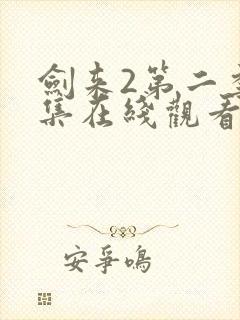 劍来2第二季
集在綫觀看
安爭鳴